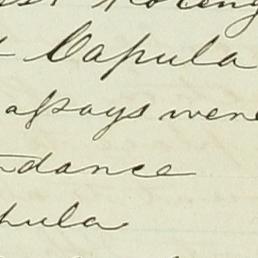 Capula
assays were
dance
pula